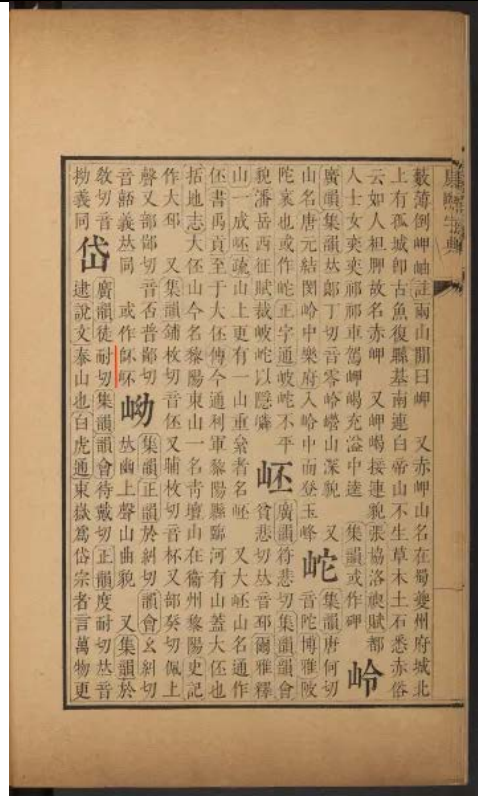 康熙字典
藪薄倒岬岫註兩山閒曰岬 又赤岬山名在蜀夔州府城北
上有孤城卽古魚復縣基南連白帝山不生草木土石悉赤俗
云如人袒胛故名赤岬 又岬嵑接連貌張協洛禊賦都
人士女奕奕祁祁車駕岬嵑充溢中逵 集韻或作
岭
廣韻集韻𠀤郞丁切音零岭巆山深貌 又
山名唐元結閔岭中樂府入岭中而登玉峰
岮
集韻唐何切
音陀博雅陂
陀衺也或作岮正字通岥岮不平
貌潘岳西征賦裁岥岮以隱嶙
岯
廣韻符悲切集韻韻會
貧悲切𠀤音邳爾雅釋
山一成岯疏山上更有一山重絫者名岯 又大岯山名通作
伾書禹貢至于大伾傳今通利軍黎陽縣臨河有山蓋大伾也
括地志大伾山今名黎陽東山一名靑壇山在衞州黎陽史記
作大邳 又集韻鋪枚切音伾又晡枚切音杯又部癸切佩上
聲又部鄙切音否普鄙切
音嚭義𠀤同 或作
岰
集韻正韻於糾切韻會幺糾切
𠀤幽上聲山曲貌 又集韻於
敎切音
拗義同
岱
廣韻徒耐切集韻韻會待戴切正韻度耐切𠀤音
逮說文泰山也白虎通東嶽爲岱宗者言萬物更